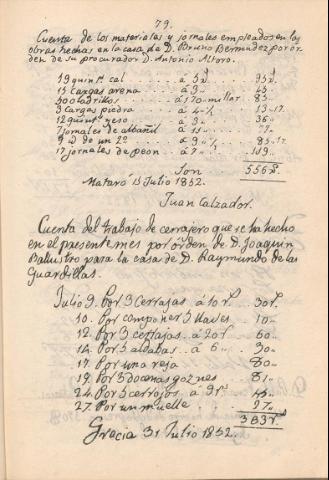 79.
Cuenta de los materiales y jornales empleados en las
obras hechas en la casa de D. Bruno Bermudez por or-
den de su procurador D. Antonio Alloro.
19 quint.s cal . . . á 5 . . . 95
15 cargas arena . . á 3 . . . 45
500 ladrillos . . . á 170 millar 85
3 Cargas piedra . . á 4½ . . 13-17
12 quint.s yeso . . . á 3 . . . 36
7 jornales de albañil . á 11 . . . 77
9 id de un 2º . . . á 9½ . . 85-17
17 jornales de peon . . á 7 . . . 119
Son 556
Mataró 15 Julio 1852.
Juan Calzador.
Cuenta del trabajo de cerrajero que se ha hecho
en el presente mes por órden de D. Joaquin
Ballustro para la casa de D. Raymundo de las
Guardillas.
Julio 9. Por 3 Cerrajas á 10 rs. 30 rs.
10. Por componer 5 llaves . 10
12. Por 3 cerrajas á 20 rs. 60
14. Por 5 aldabas á 6 . . 30
17. Por una reja . . . 80
19. Por 3 docenas goznes . . 81
24. Por 5 cerrojos á 9 rs. 45
27. Por un muelle . . . 47
383 rs.
Gracia 31 Julio 1852.